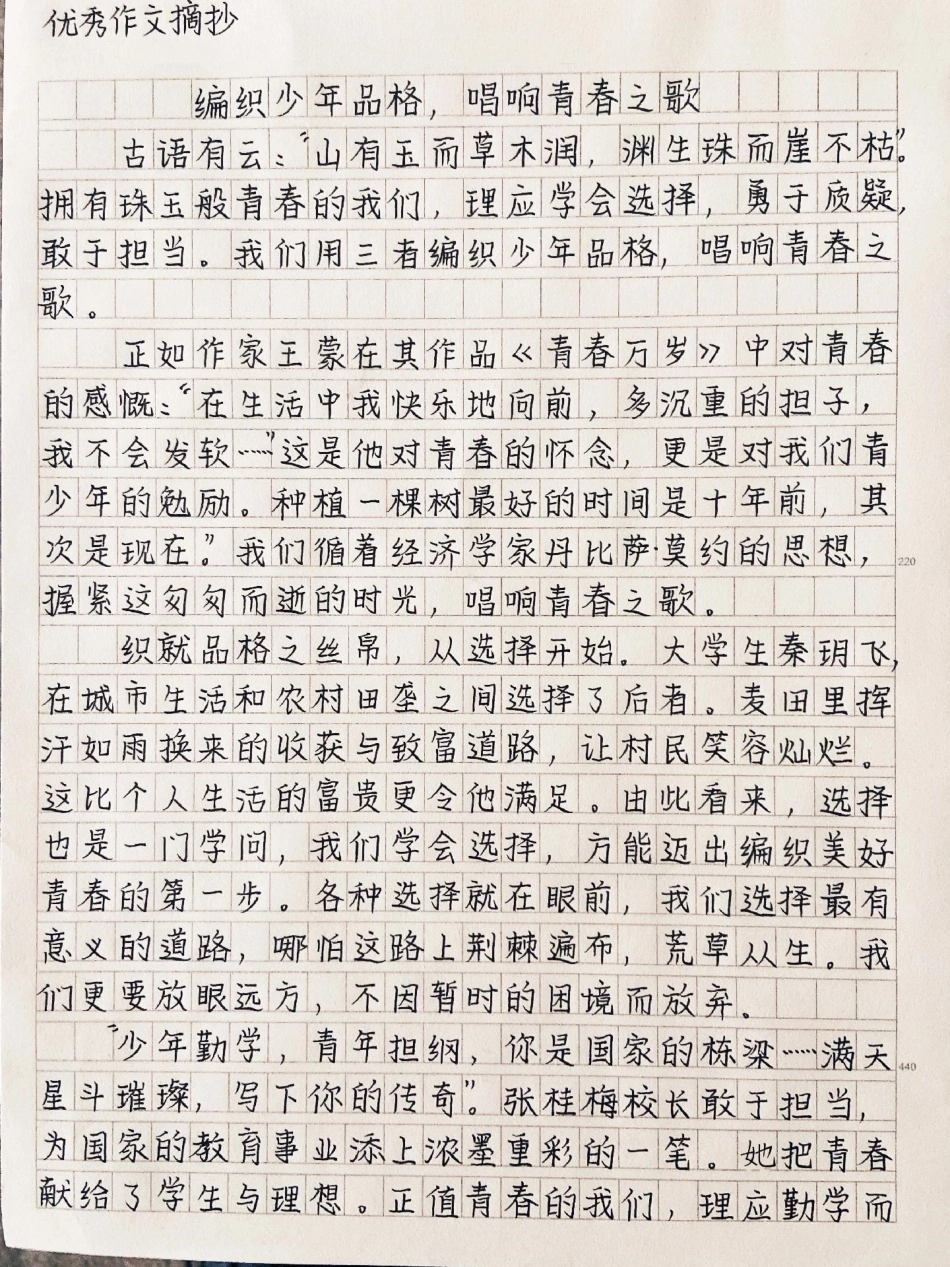 优秀作文摘抄
编织少年品格，唱响青春之歌
古语有云：“山有玉而草木润，渊生珠而崖不枯”。
拥有珠玉般青春的我们，理应学会选择，勇于质疑，
敢于担当。我们用三者编织少年品格，唱响青春之
歌。
正如作家王蒙在其作品《青春万岁》中对青春
的感慨：“在生活中我快乐地向前，多沉重的担子，
我不会发软……”这是他对青春的怀念，更是对我们青
少年的勉励。种植一棵树最好的时间是十年前，其
次是现在。”我们循着经济学家丹比萨·莫约的思想，
220
握紧这匆匆而逝的时光，唱响青春之歌。
织就品格之丝帛，从选择开始。大学生秦玥飞，
在城市生活和农村田垄之间选择了后者。麦田里挥
汗如雨换来的收获与致富道路，让村民笑容灿烂。
这比个人生活的富贵更令他满足。由此看来，选择
也是一门学问，我们学会选择，方能迈出编织美好
青春的第一步。各种选择就在眼前，我们选择最有
意义的道路，哪怕这路上荆棘遍布，荒草从生。我
们更要放眼远方，不因暂时的困境而放弃。
“少年勤学，青年担纲，你是国家的栋梁……满天
440
星斗璀璨，写下你的传奇”。张桂梅校长敢于担当，
为国家的教育事业添上浓墨重彩的一笔。她把青春
献给了学生与理想。正值青春的我们，理应勤学而